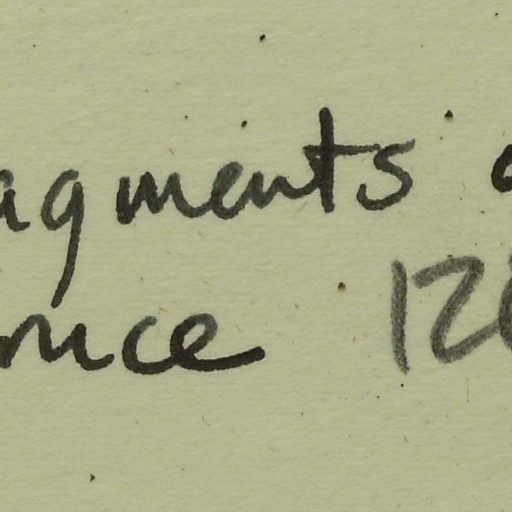 agments
nuce 12